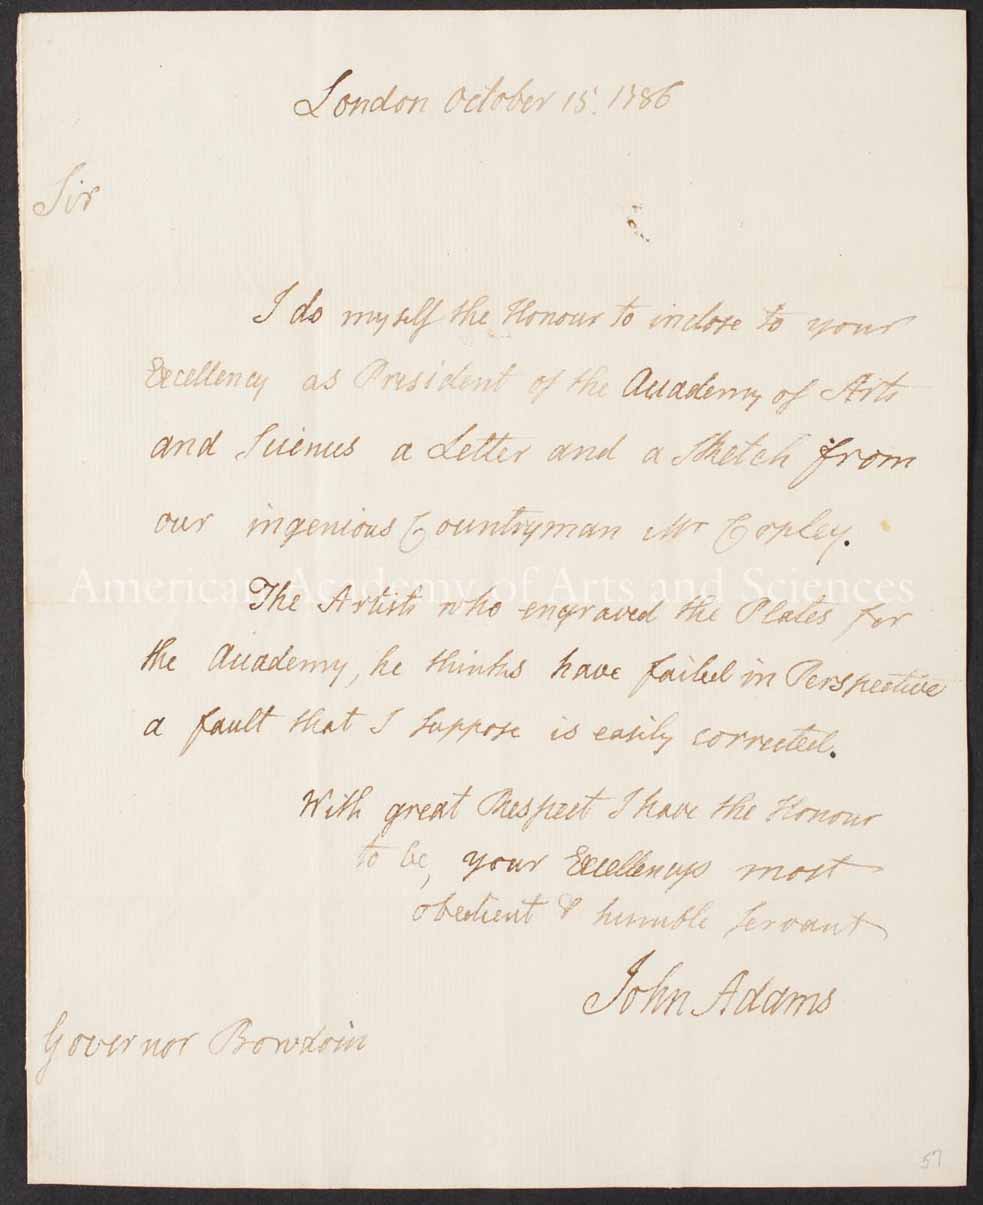 London October 15. 1786
Sir
I do myself the Honour to inclose to your
Excellency as President of the Academy of Arts
and Sciences a Letter and a Sketch from
our ingenious Countryman Mr Copley.
American Academy of Arts and Sciences
The Artists who engraved the Plates for
the Academy, he thinks have failed in Perspective
a fault that I suppose is easily corrected.
With great Respect I have the Honour
to be, your Excellencys most
obedient & humble servant
John Adams
Governor Bowdoin
57